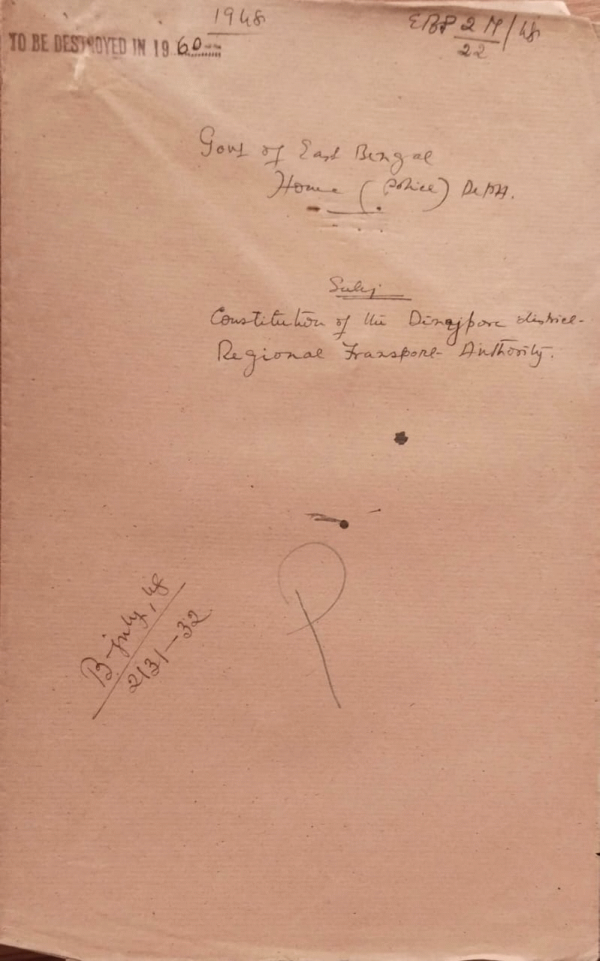 1948
EBP 2M/48
22
TO BE DESTROYED IN 1960
Govt of East Bengal
Home (Police) Deptt.
Subj
Constitution of the Dinajpore district
Regional Transport Authority.
B July, 48
2131-32
P